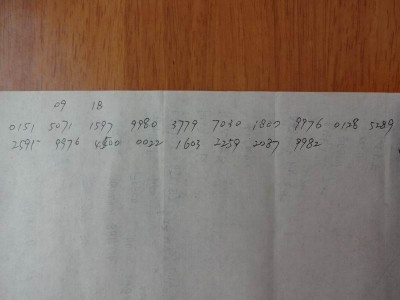 09 18
0151 5071 1597 9980 3779 7030 1807 9976 0128 5289
2591 9976 4500 0022 1603 2259 2087 9982